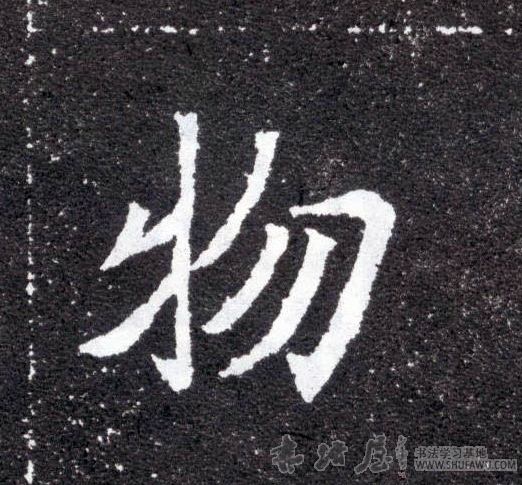 物
书法学习基地
WWW.SHUFAWU.COM